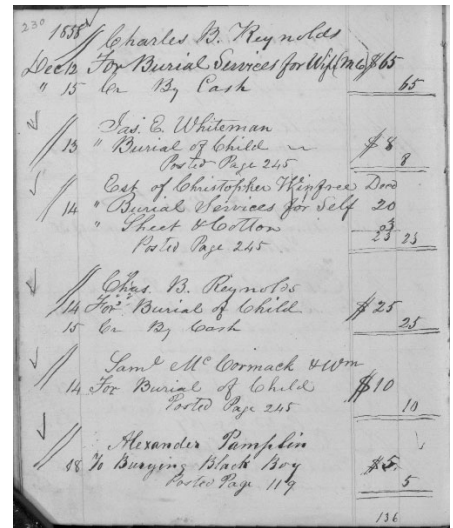 230
1858 Charles B. Reynolds
Dec 12 For Burial Services for Wife (MC) $65
" 15 Cr By Cash 65
Jas. E. Whiteman
13 " Burial of Child $8
Posted Page 245 8
Est of Christopher Winfree Decd
14 " Burial Services for Self 20
" Sheet & Cotton 3
Posted Page 245 23 23
Chas. B. Reynolds
14 For Burial of Child $25
15 Cr By Cash 25
Saml McCormack & Wm
14 For Burial of Child $10
Posted Page 245 10
Alexander Pamplin
18 To Burying Black Boy $5.
Posted Page 119 5
136